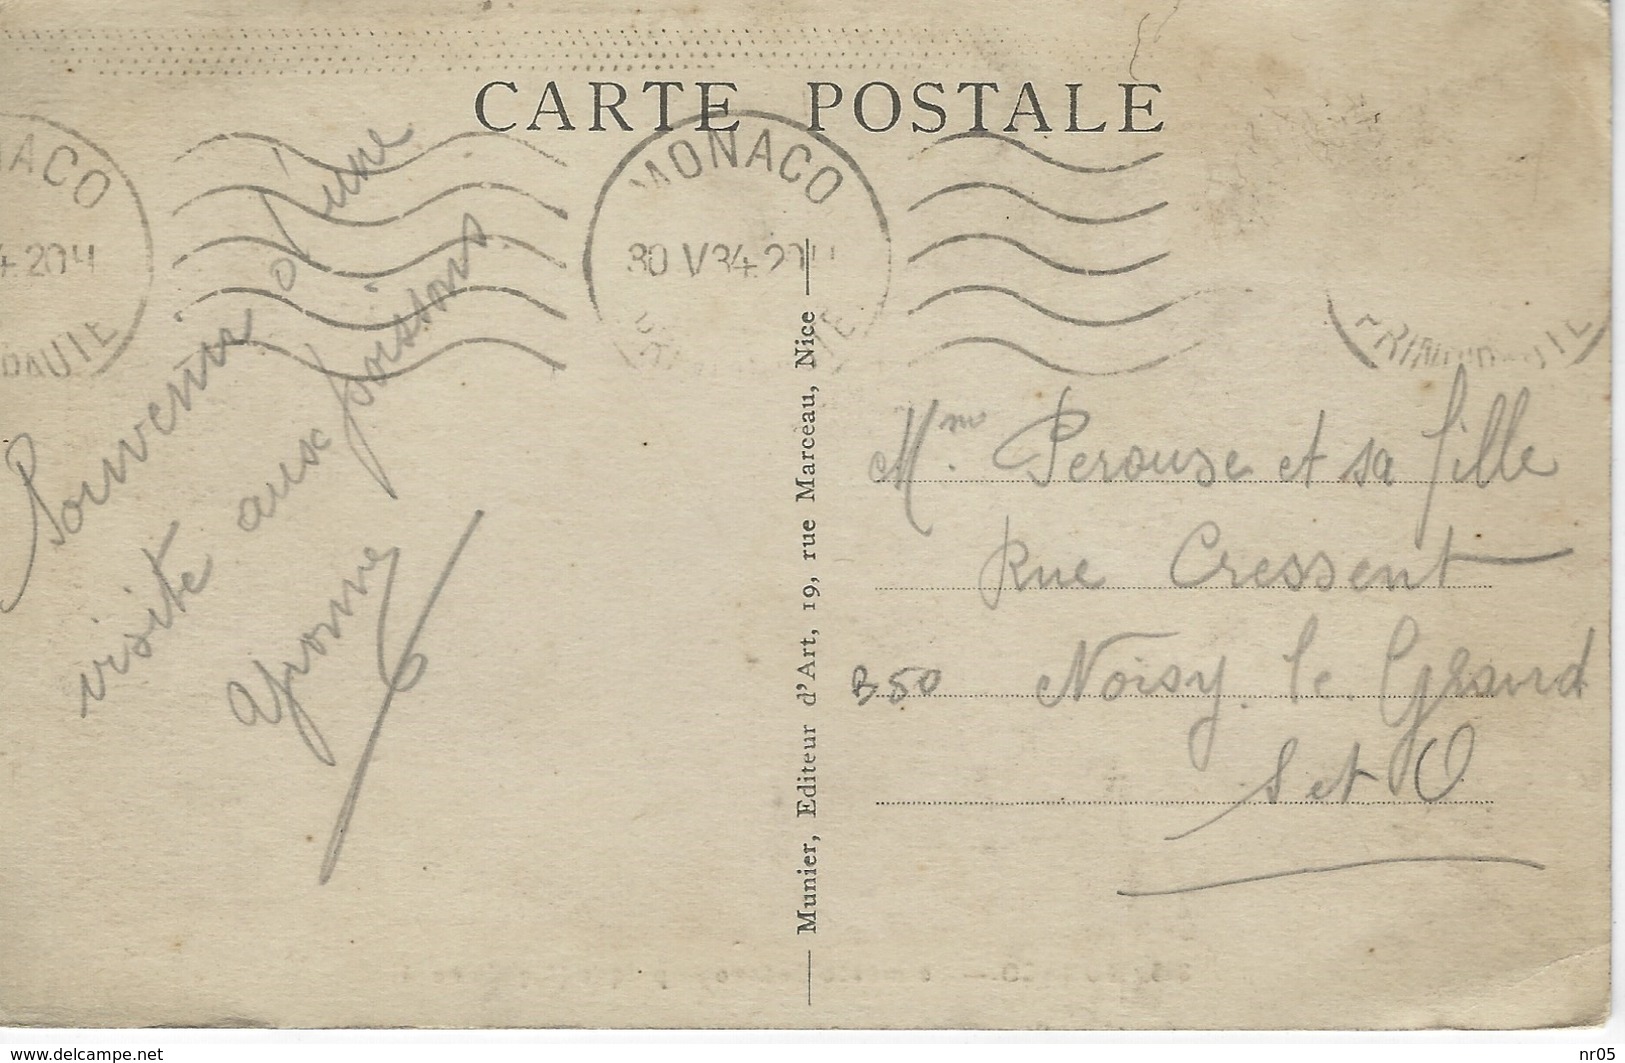 CARTE POSTALE
MONACO
30 V 34 20H
NACO
4 20H
Souvenir d'une
visite aux poissons.
Yvonne
Munier, Editeur d'Art, 19, rue Marceau, Nice
Mme. Perouse et sa fille
Rue Cressent
B50
Noisy. le. Grand
S et O
www.delcampe.net
nr05